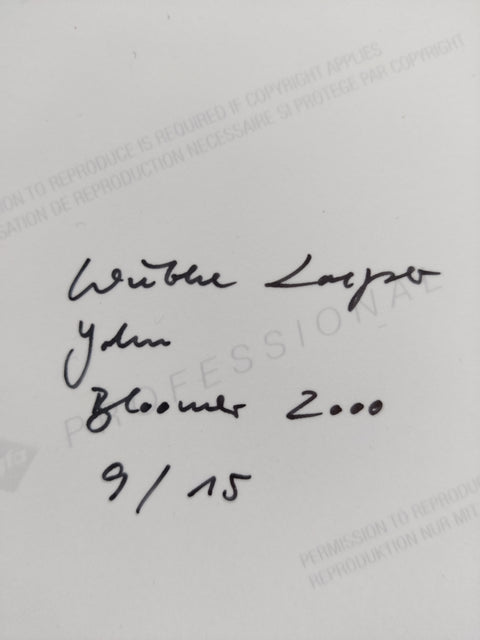 ON TO REPRODUCE IS REQUIRED IF COPYRIGHT APPLIES
SATION DE REPRODUCTION NECESSAIRE SI PROTEGE PAR COPYRIGHT
Wiebke Loeper
John
PROFESSIONAL
Bloomer 2000
9 / 15
PERMISSION TO REPRODU
REPRODUKTION NUR MIT